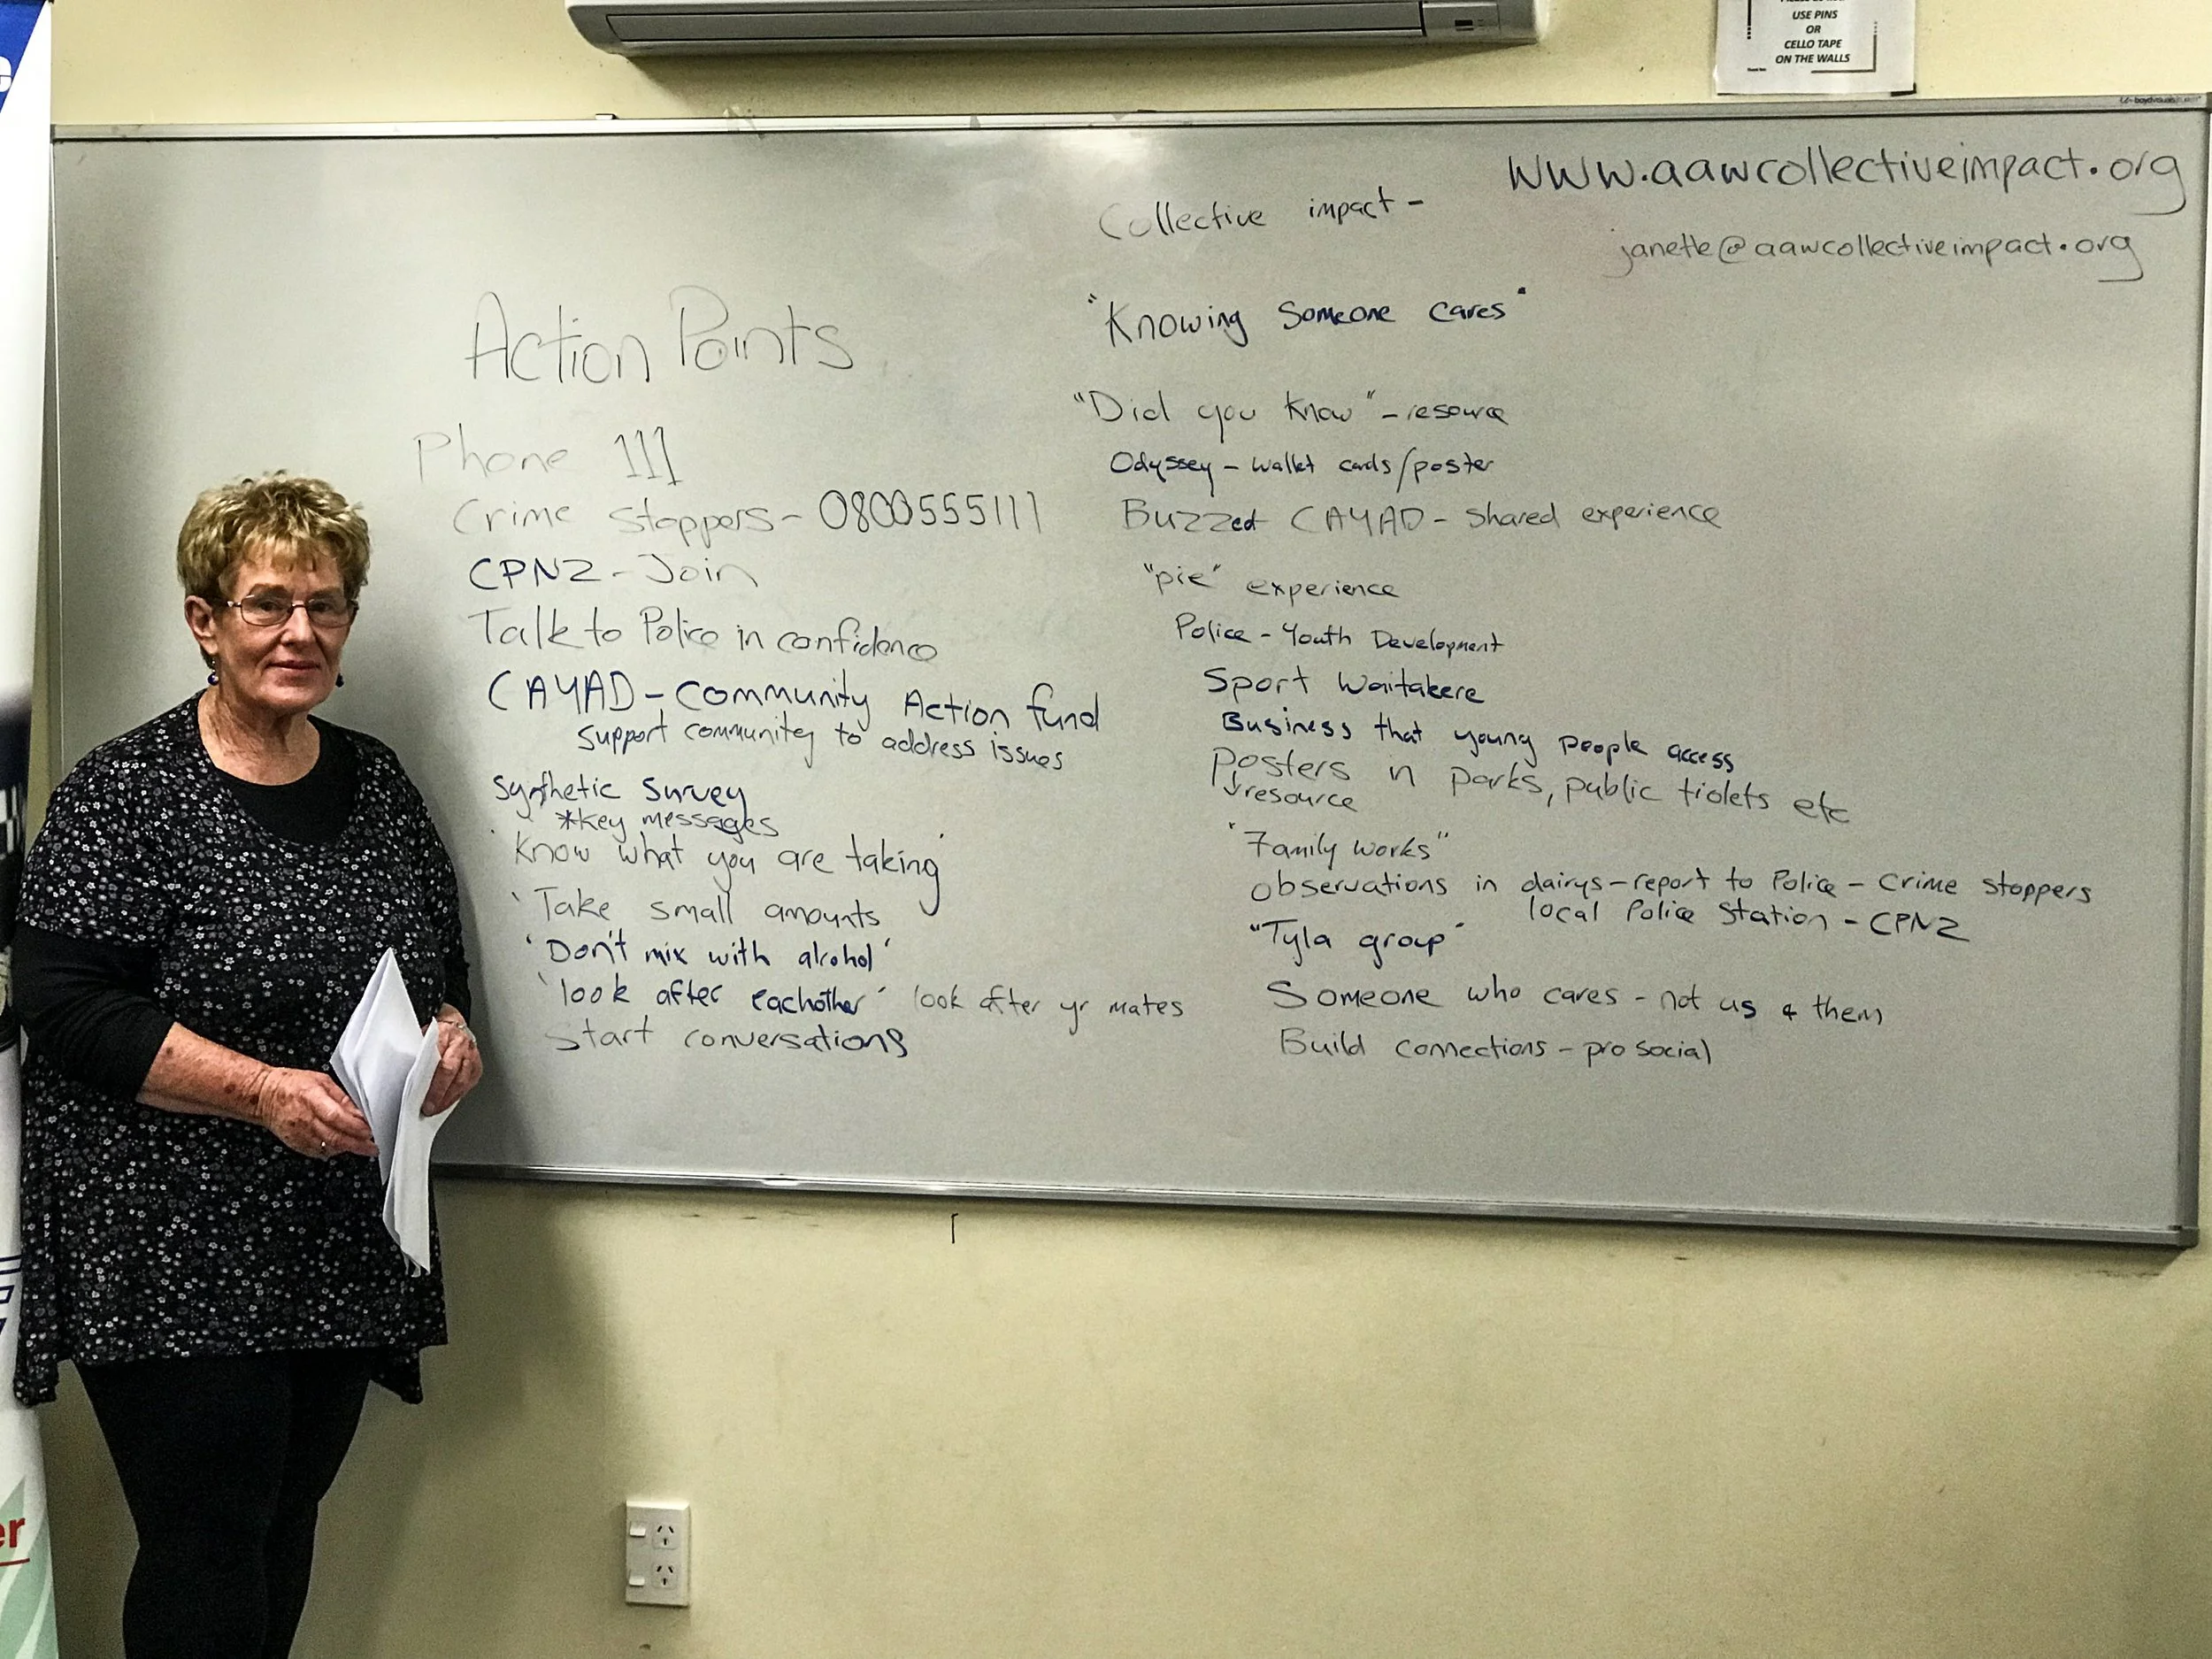 USE PINS
OR
CELLO TAPE
ON THE WALLS
www.aawcollectiveimpact.org
janette@aawcollectiveimpact.org
Action Points
Phone 111
Crime Stoppers - 0800555111
CPNZ - Join
Talk to Police in confidence
CAYAD - Community Action fund
support community to address issues
Synthetic Survey
*key messages
'Know what you are taking'
'Take small amounts
'Don't mix with alcohol'
'look after eachother' look after yr mates
Start conversations
Collective impact -
"Knowing Someone cares"
"Did you know" - resource
Odyssey - wallet cards/poster
Buzzed CAYAD - shared experience
"pie" experience
Police - Youth Development
Sport Waitakere
Business that young people access
posters in parks, public tiolets etc
↓resource
"Family works"
observations in dairys - report to Police - Crime Stoppers
local Police Station - CPNZ
"Tyla group"
Someone who cares - not us & them
Build connections - pro social
er